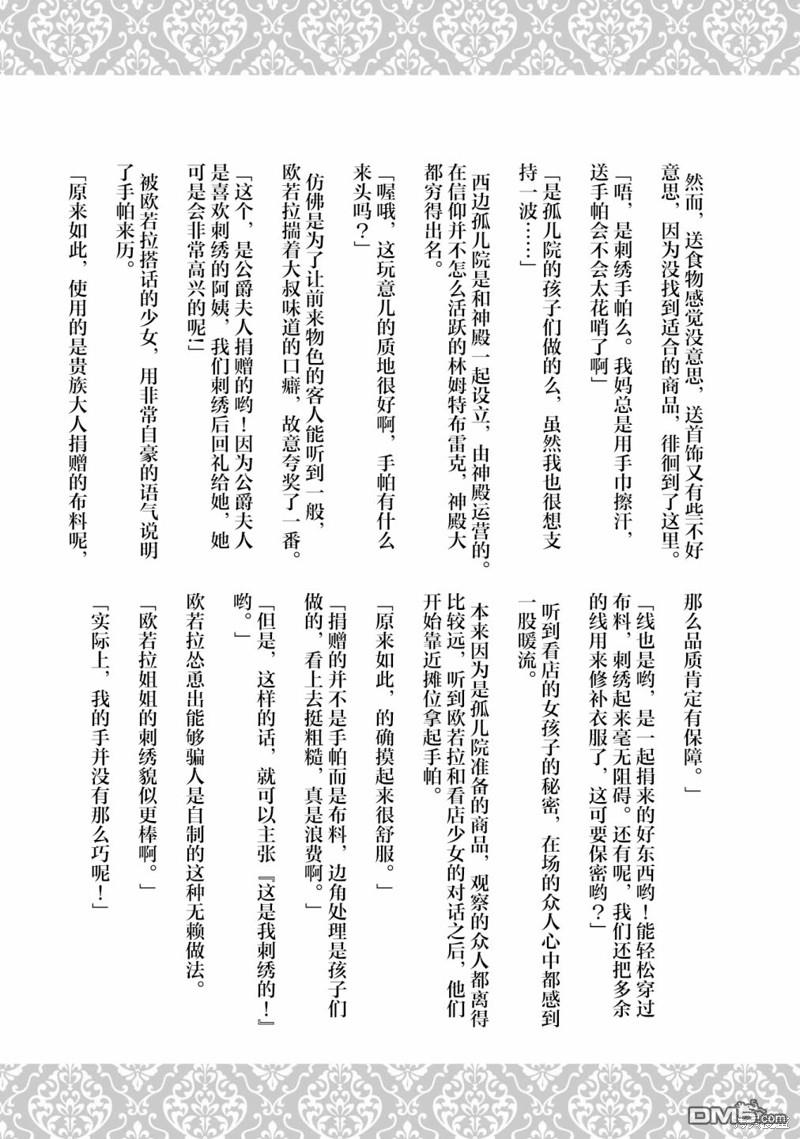 然而，送食物感觉没意思，送首饰又有些不好
意思，因为没找到适合的商品，徘徊到了这里。
「唔，是刺绣手帕么。我妈总是用手巾擦汗，
送手帕会不会太花哨了啊」
「是孤儿院的孩子们做的么，虽然我也很想支
持一波……」
西边孤儿院是和神殿一起设立，由神殿运营的。
在信仰并不怎么活跃的林姆特布雷克，神殿大
都穷得出名。
「喔哦，这玩意儿的质地很好啊，手帕有什么
来头吗？」
仿佛是为了让前来物色的客人能听到一般，
欧若拉揣着大叔味道的口癖，故意夸奖了一番。
「这个，是公爵夫人捐赠的哟！因为公爵夫人
是喜欢刺绣的阿姨，我们刺绣后回礼给她，她
可是会非常高兴的呢!」
被欧若拉搭话的少女，用非常自豪的语气说明
了手帕来历。
「原来如此，使用的是贵族大人捐赠的布料呢，
那么品质肯定有保障。」
「线也是哟，是一起捐来的好东西哟！能轻松穿过
布料，刺绣起来毫无阻碍。还有呢，我们还把多余
的线用来修补衣服了，这可要保密哟？」
听到看店的女孩子的秘密，在场的众人心中都感到
一股暖流。
本来因为是孤儿院准备的商品，观察的众人都离得
比较远，听到欧若拉和看店少女的对话之后，他们
开始靠近摊位拿起手帕。
「原来如此，的确摸起来很舒服。」
「捐赠的并不是手帕而是布料，边角处理是孩子们
做的，看上去挺粗糙，真是浪费啊。」
「但是，这样的话，就可以主张『这是我刺绣的！』
哟。」
欧若拉怂恿出能够骗人是自制的这种无赖做法。
「欧若拉姐姐的刺绣貌似更棒啊。」
「实际上，我的手并没有那么巧呢！」
DM5.com